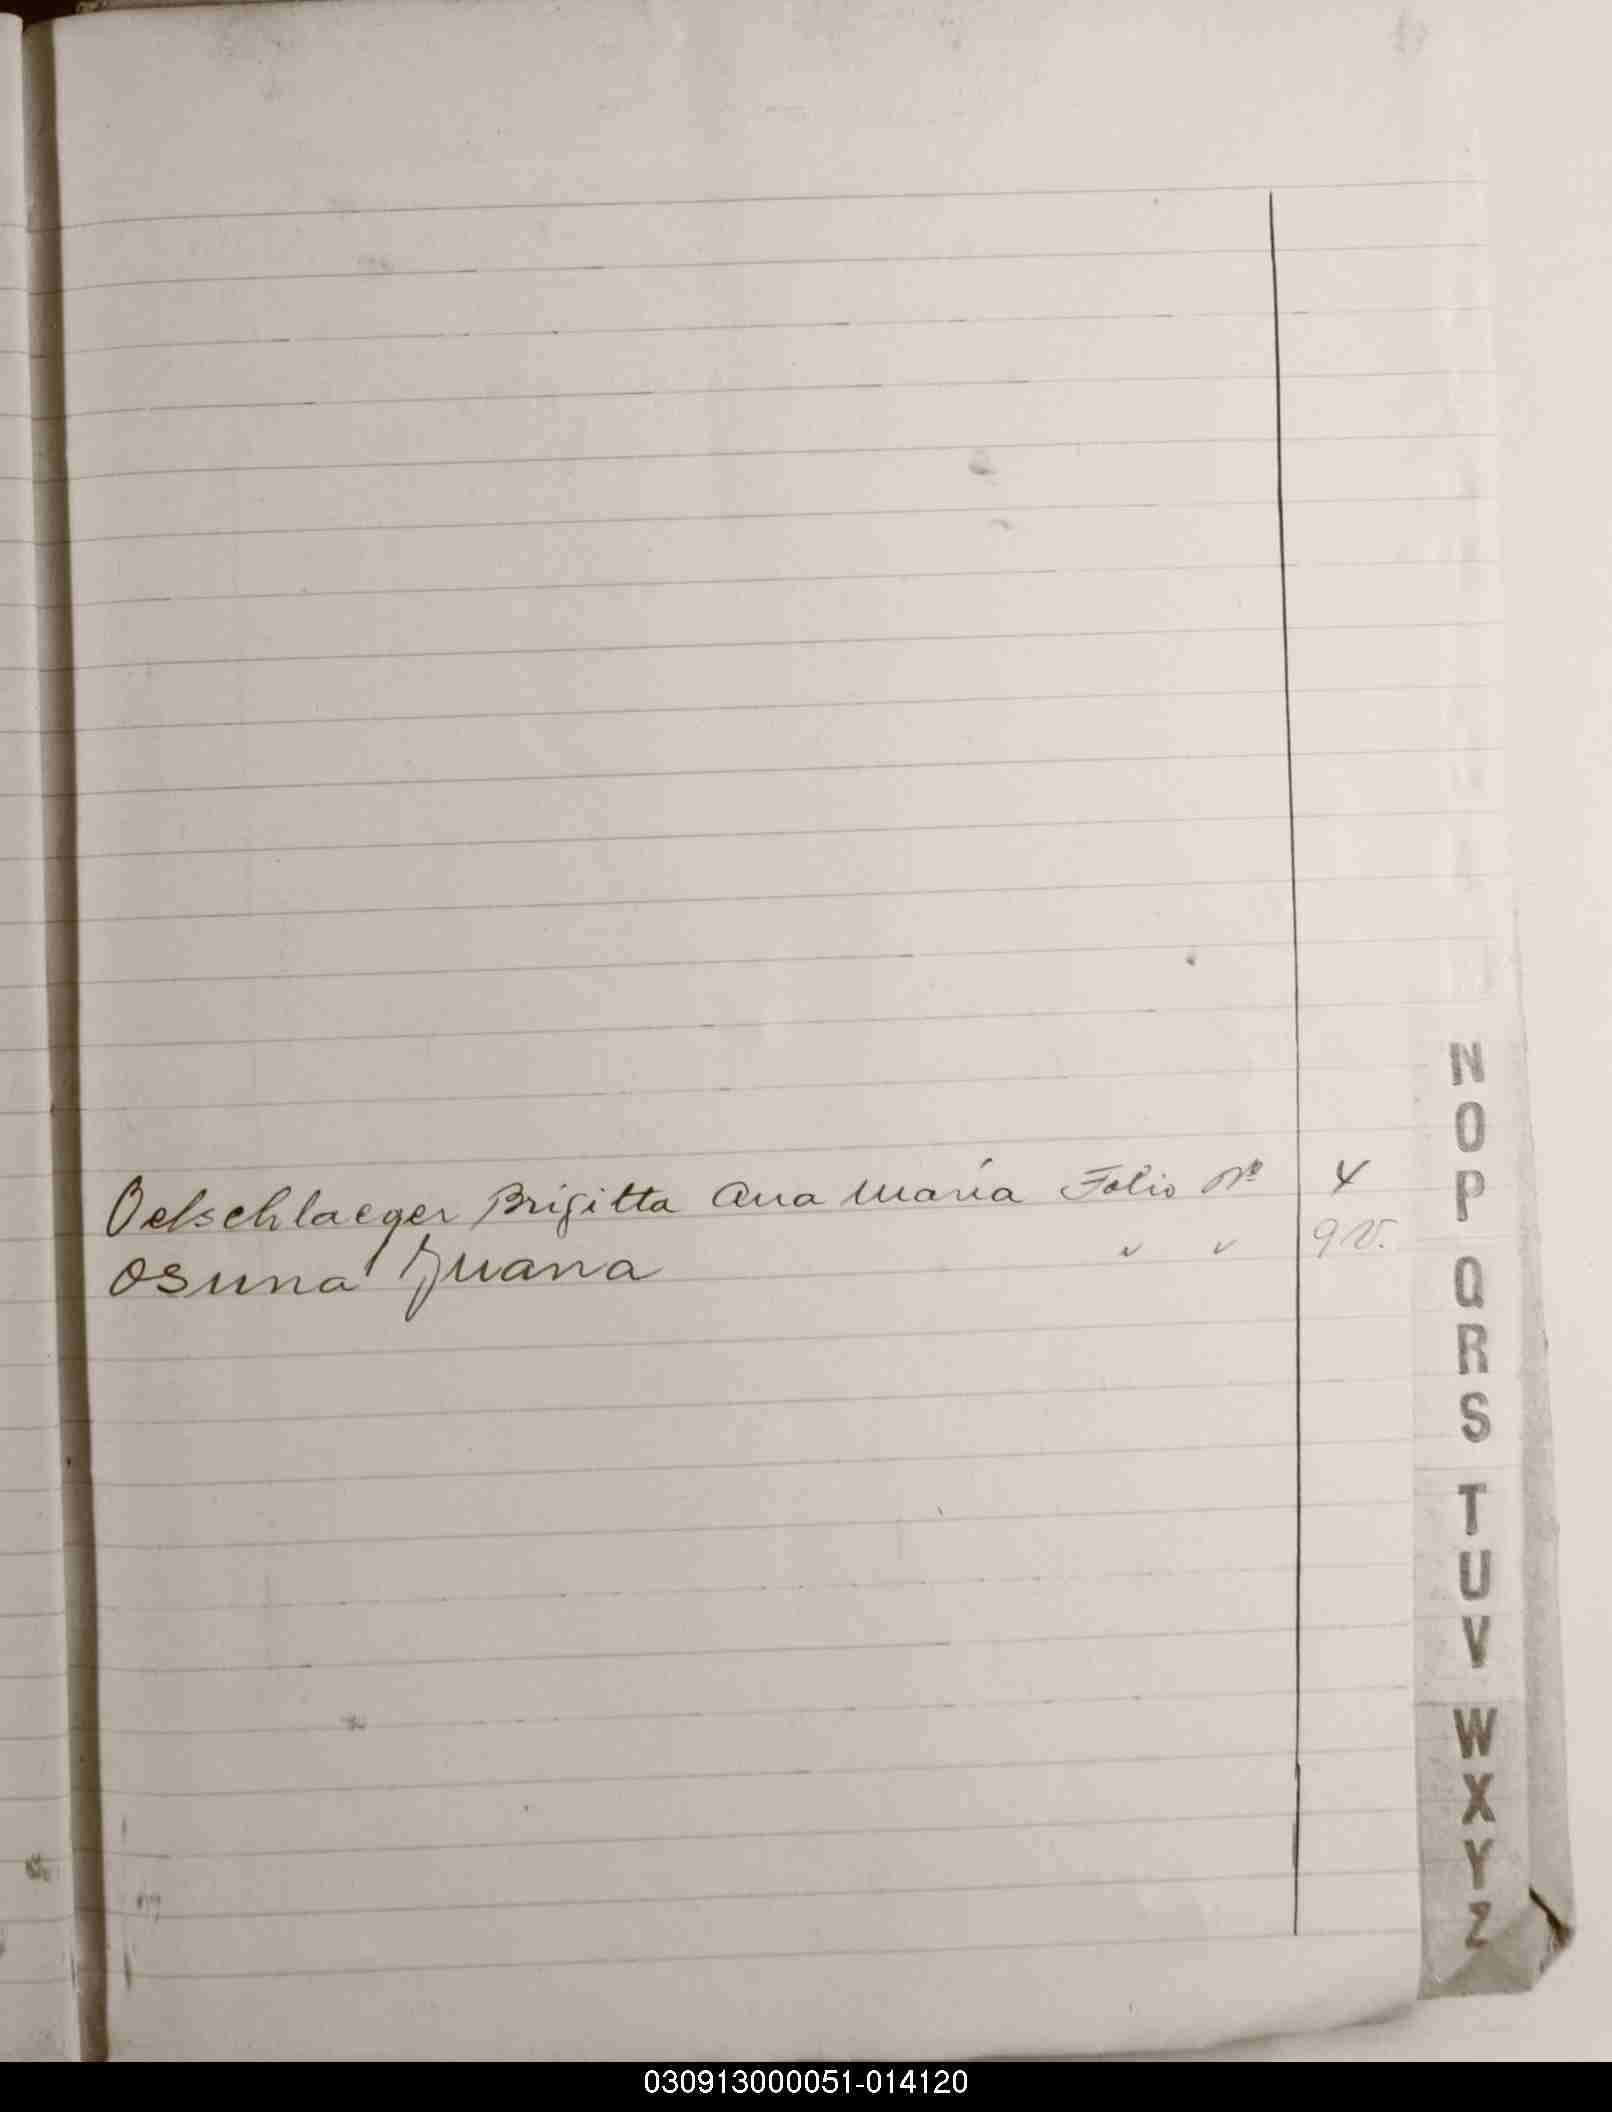 Oelschlaeger Brigitta Ana María Folio Nº 4
Osuna Juana " " 9 V.
N
O
P
Q
R
S
T
U
V
W
X
Y
Z
030913000051-014120